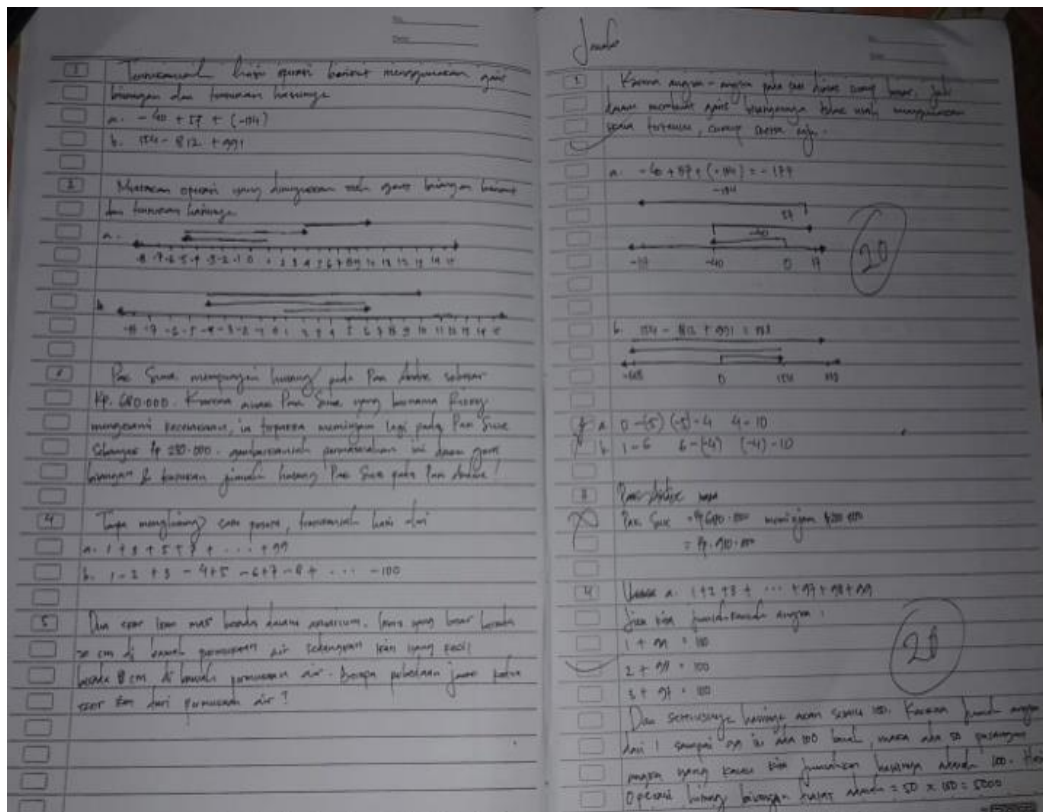 1 Tentukanlah hasil operasi berikut menggunakan garis
bilangan dan tentukan hasilnya
a. - 40 + 57 + (-194)
b. 124 - 812 + 991
2 Nyatakan operasi yang ditunjukkan oleh garis bilangan berikut
dan tentukan hasilnya
a.
-8 -7 -6 -5 -4 -3 -2 -1 0 1 2 3 4 5 6 7 8 9 10 11 12 13 14 15
b.
Pak Suse mempunyai hutang pada Pak Andre sebesar
Rp. 680.000. Karena anak Pak Suse yang bernama
mengalami kecelakaan, ia terpaksa meminjam lagi pada Pak Suse
Sebanyak Rp 230.000. gambarkanlah permasalahan ini dalam garis
bilangan & tentukan jumlah hutang Pak Suse pada Pak Andre!
4 Tanpa menghitung satu persatu, tentukanlah hasil dari
a. 1 + 3 + 5 + 7 + . . . . + 99
b. 1 - 2 + 3 - 4 + 5 - 6 + 7 - 8 + . . . - 100
5 Dua ekor ikan mas berada dalam aquarium. Ikan yang besar berada
20 cm di bawah permukaan air sedangkan ikan yang kecil
berada 8 cm di bawah permukaan air. Berapa perbedaan jarak kedua
ekor ikan dari permukaan air?
Jawab
1 Karena angka-angka pada soal diatas cukup besar, jadi
dalam membuat garis bilangannya tidak usah menggunakan
skala tertentu, cukup saja.
a. -40 + 57 + (-194) = -177
-194
57
-40
-177 -40 0 17
20
b. 124 - 812 + 991 =
0 124
a 0 -(-5) (-5) - 4 4 - 10
b 1 - 6 6 - (-4) (-4) - 10
3
Pak Suse = Rp 680.000 meminjam
= Rp. 910.000
4 a. 1 + 2 + 3 + . . . + 97 + 98 + 99
Jika kita jumlahkan angka :
1 + 99 = 100
2 + 98 = 100
3 + 97 = 100
20
Dan seterusnya hasilnya akan selalu 100. Karena jumlah angka
dari 1 sampai 99 itu ada 100 buah, maka ada 50 pasangan
angka yang kalau kita jumlahkan hasilnya adalah 100.
Operasi hitung bilangan bulat adalah = 50 x 100 = 5000